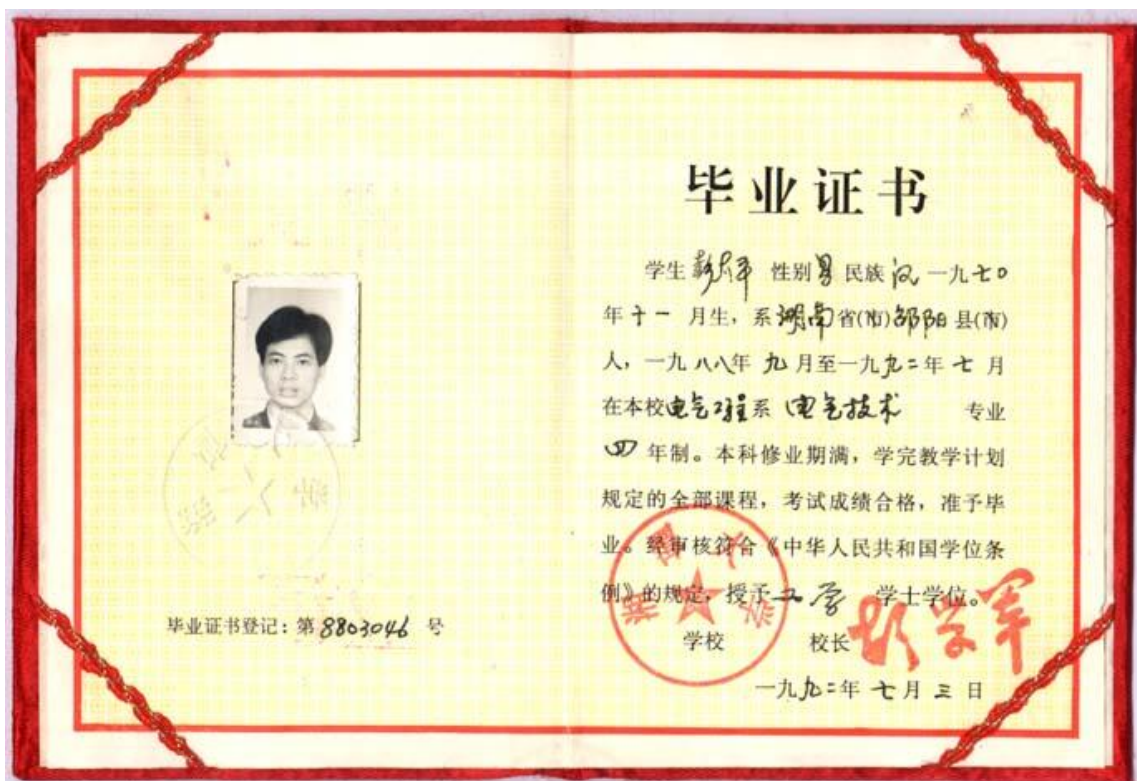 毕业证书
学生 彭 平 性别 男 民族 汉 一九七〇
年 十一 月生,系 湖南 省(市) 邵阳 县(市)
人,一九八八年 九 月至一九九二年 七 月
在本校电气工程系 电气技术 专业
四 年制。本科修业期满,学完教学计划
规定的全部课程,考试成绩合格,准予毕
业。经审核符合《中华人民共和国学位条
例》的规定,授予 工学 学士学位。
学校 校长
一九九二年 七 月 三 日
毕业证书登记:第 8803046 号